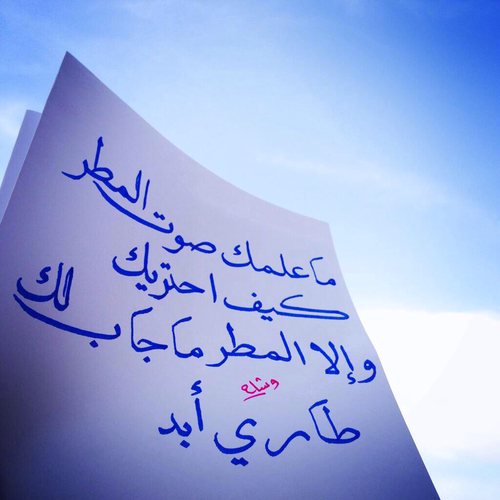 ما علمك صوت المطر
كيف احتريك
وإلا المطر ما جاب لك
طاري أبد